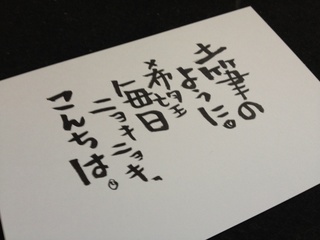 土筆の
ように。
希望
毎日
ニョキニョキ、
こんちは。